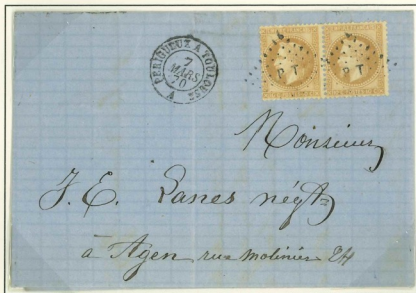 PERIGUEUX A TOULOUSE
7
MARS
70
A
PT PT
Monsieur
J. E. Lanes négt
à Agen rue Molinier 24